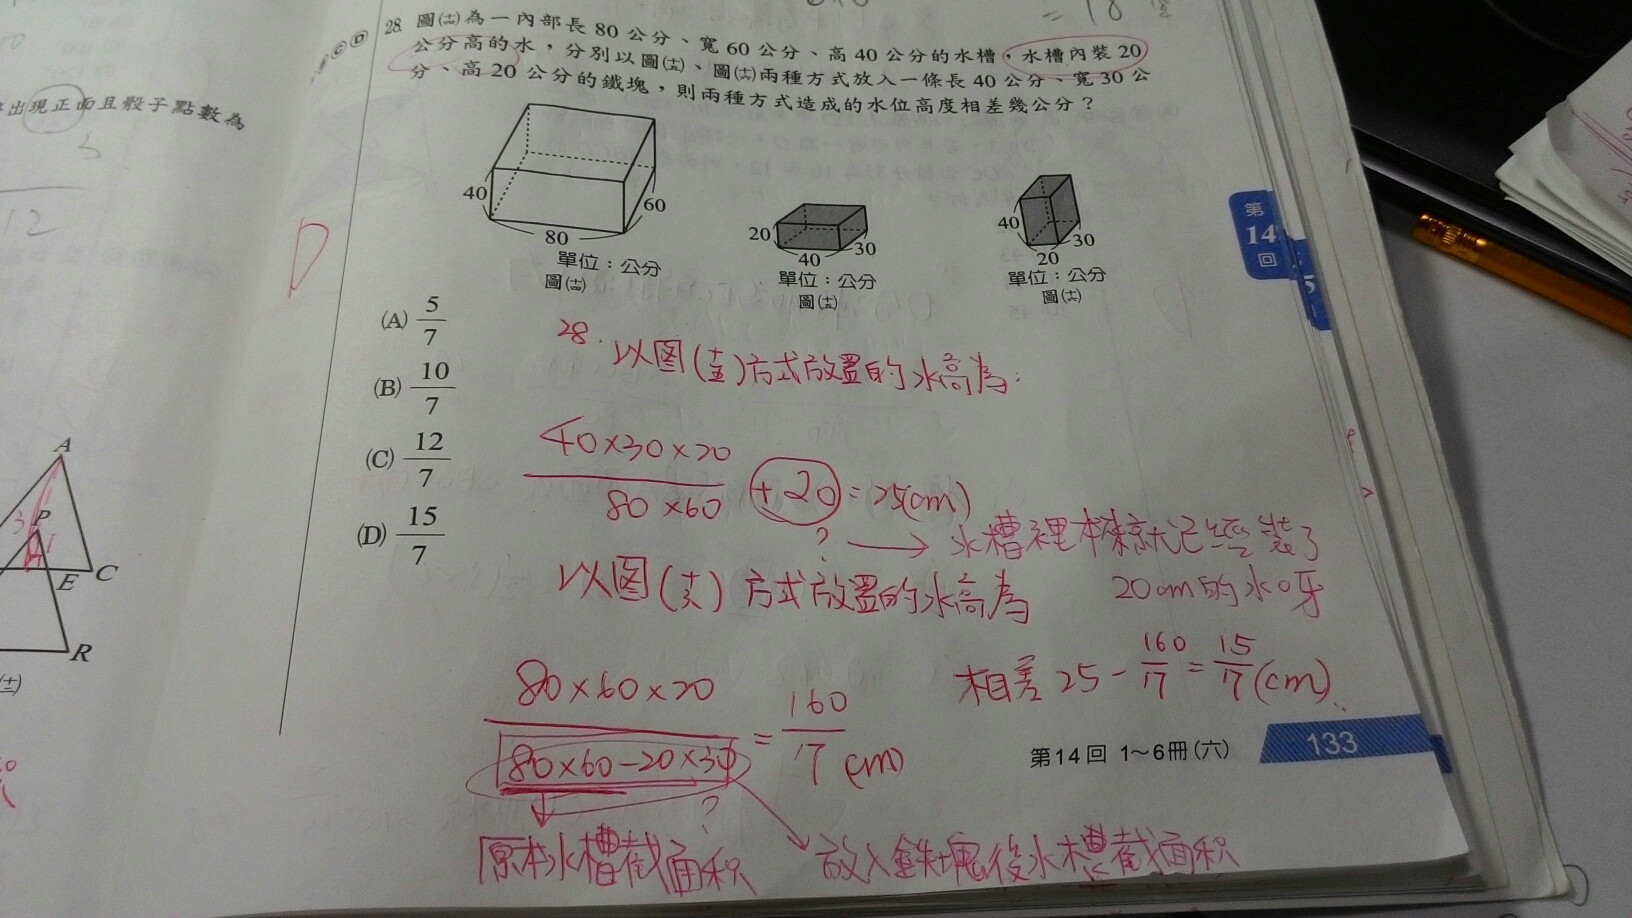 = 18
28. 圖(十四)為一內部長 80 公分、寬 60 公分、高 40 公分的水槽，水槽內裝 20
公分高的水，分別以圖(十五)、圖(十六)兩種方式放入一條長 40 公分、寬 30 公
分、高 20 公分的鐵塊，則兩種方式造成的水位高度相差幾公分？
ⒸⒹ
出現正面且骰子點數為
3
12
D
40
80
60
單位：公分
圖(十四)
20
40
30
單位：公分
圖(十五)
40
20
30
單位：公分
圖(十六)
第
14
回
5
(A) 5/7
(B) 10/7
(C) 12/7
(D) 15/7
28. 以图(十五)方式放置的水高為:
40×30×20
80×60
+20 = 25(cm)
? → 水槽裡本來就已經裝了
20cm的水牙
以图(十六)方式放置的水高為
80×60×20
80×60-20×30
= 160/17 (cm)
相差 25 - 160/17 = 15/7 (cm)
?
原本水槽截面积
放入鉄塊後水槽截面积
A
P
3
E
C
R
(十三)
第14回 1～6冊(六)
133